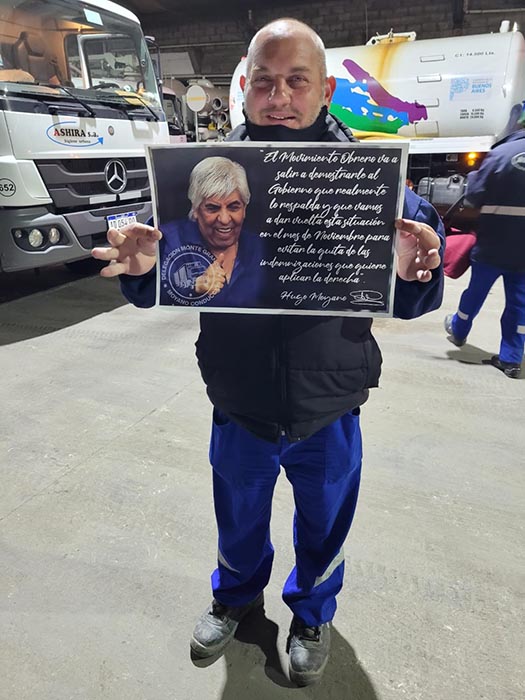 ASHIRA S.A.
higiene urbana
652
BUENOS
AIRES
"El Movimiento Obrero va a
salir a demostrarle al
Gobierno que realmente
lo respalda y que vamos
a dar vuelta esta situación
en el mes de Noviembre para
evitar la quita de las
indemnizaciones que quiere
aplicar la derecha"
Hugo Moyano
DELEGACION MONTE GRANDE
MOYANO CONDUCCION